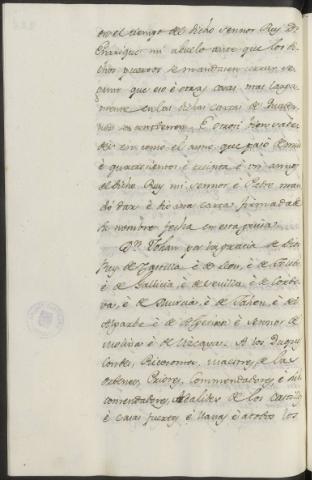 en el tiempo del dicho sennor Rey Dn
Enrrique mi abuelo ante que los di
chos puertos se mandasen cerrar se
gunt que esto è otras cosas mas larga
mente en las dichas cartas de
se contienen. E otrosi bien sabe
des en como el anno que pasó de mill
è quatrocientos è è un annos
el dicho Rey mi sennor è Padre man
dó dar è dió una carta firmada de
su nombre fecha en esta guisa.
Dn. Johan por la gracia de Dios
Rey de Castilla è de Leon, è de Toledo
è de Gallicia, è de Sevilla è de Cordo
va, è de Murcia, è de Jahen, è del
Algarbe è de Algecira è sennor de
Molina è de Vizcaya. A los Duques
Condes, Ricosomes, maestres de las
ordenes, Priores, Commendadores, è sub
comendadores, Alcaldes de los Castillos
è casas fuertes è llanas è a todos los